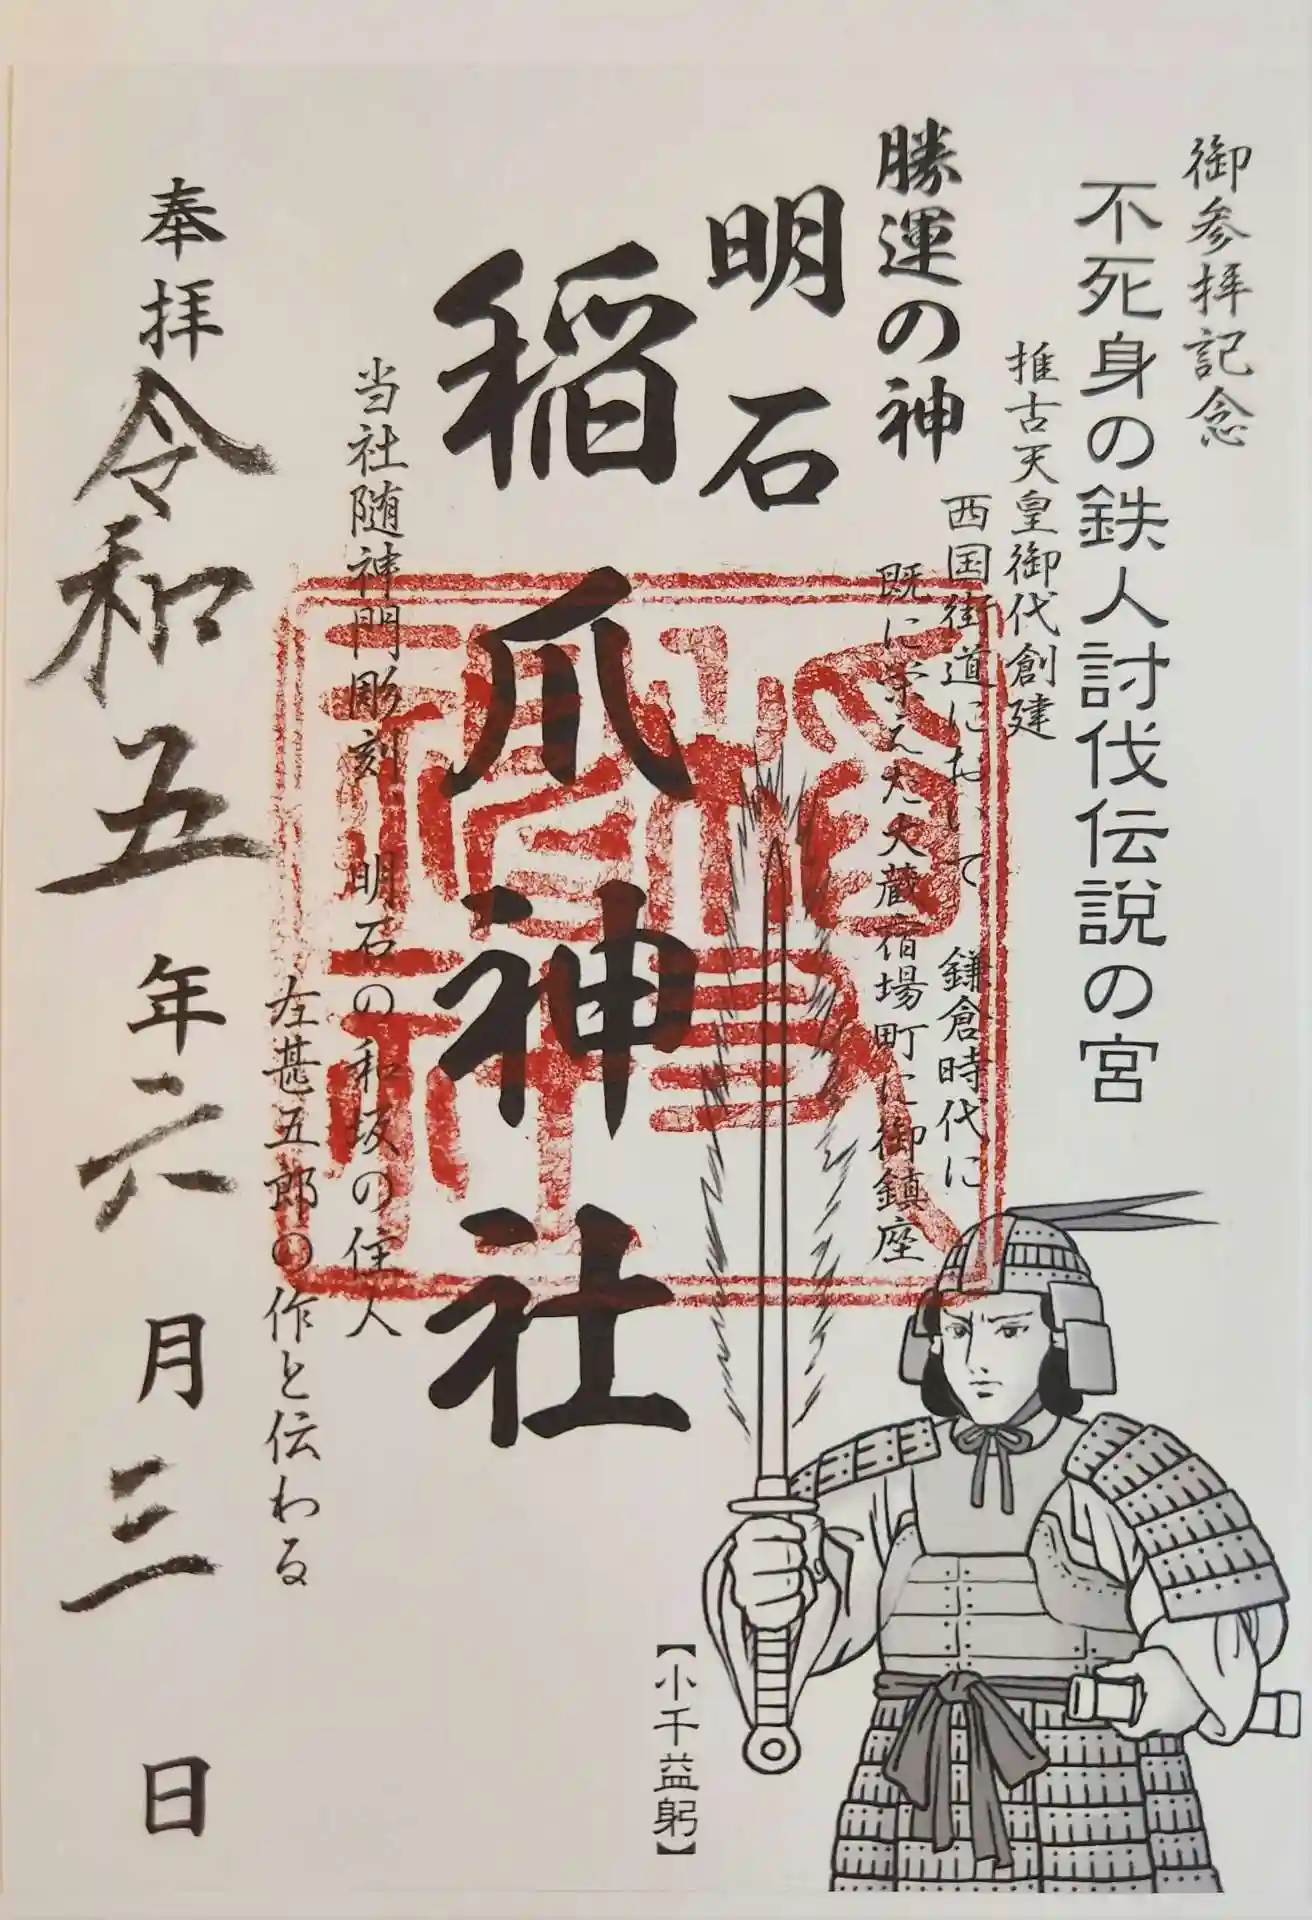 御参拝記念
不死身の鉄人討伐伝説の宮
推古天皇御代創建
西国街道において 鎌倉時代に
既に栄えた大蔵宿場町に御鎮座
勝運の神
明石
稲爪神社
当社随神門彫刻 明石の和坂の住人
左甚五郎の作と伝わる
奉拝
令和五年六月三日
【小千益躬】